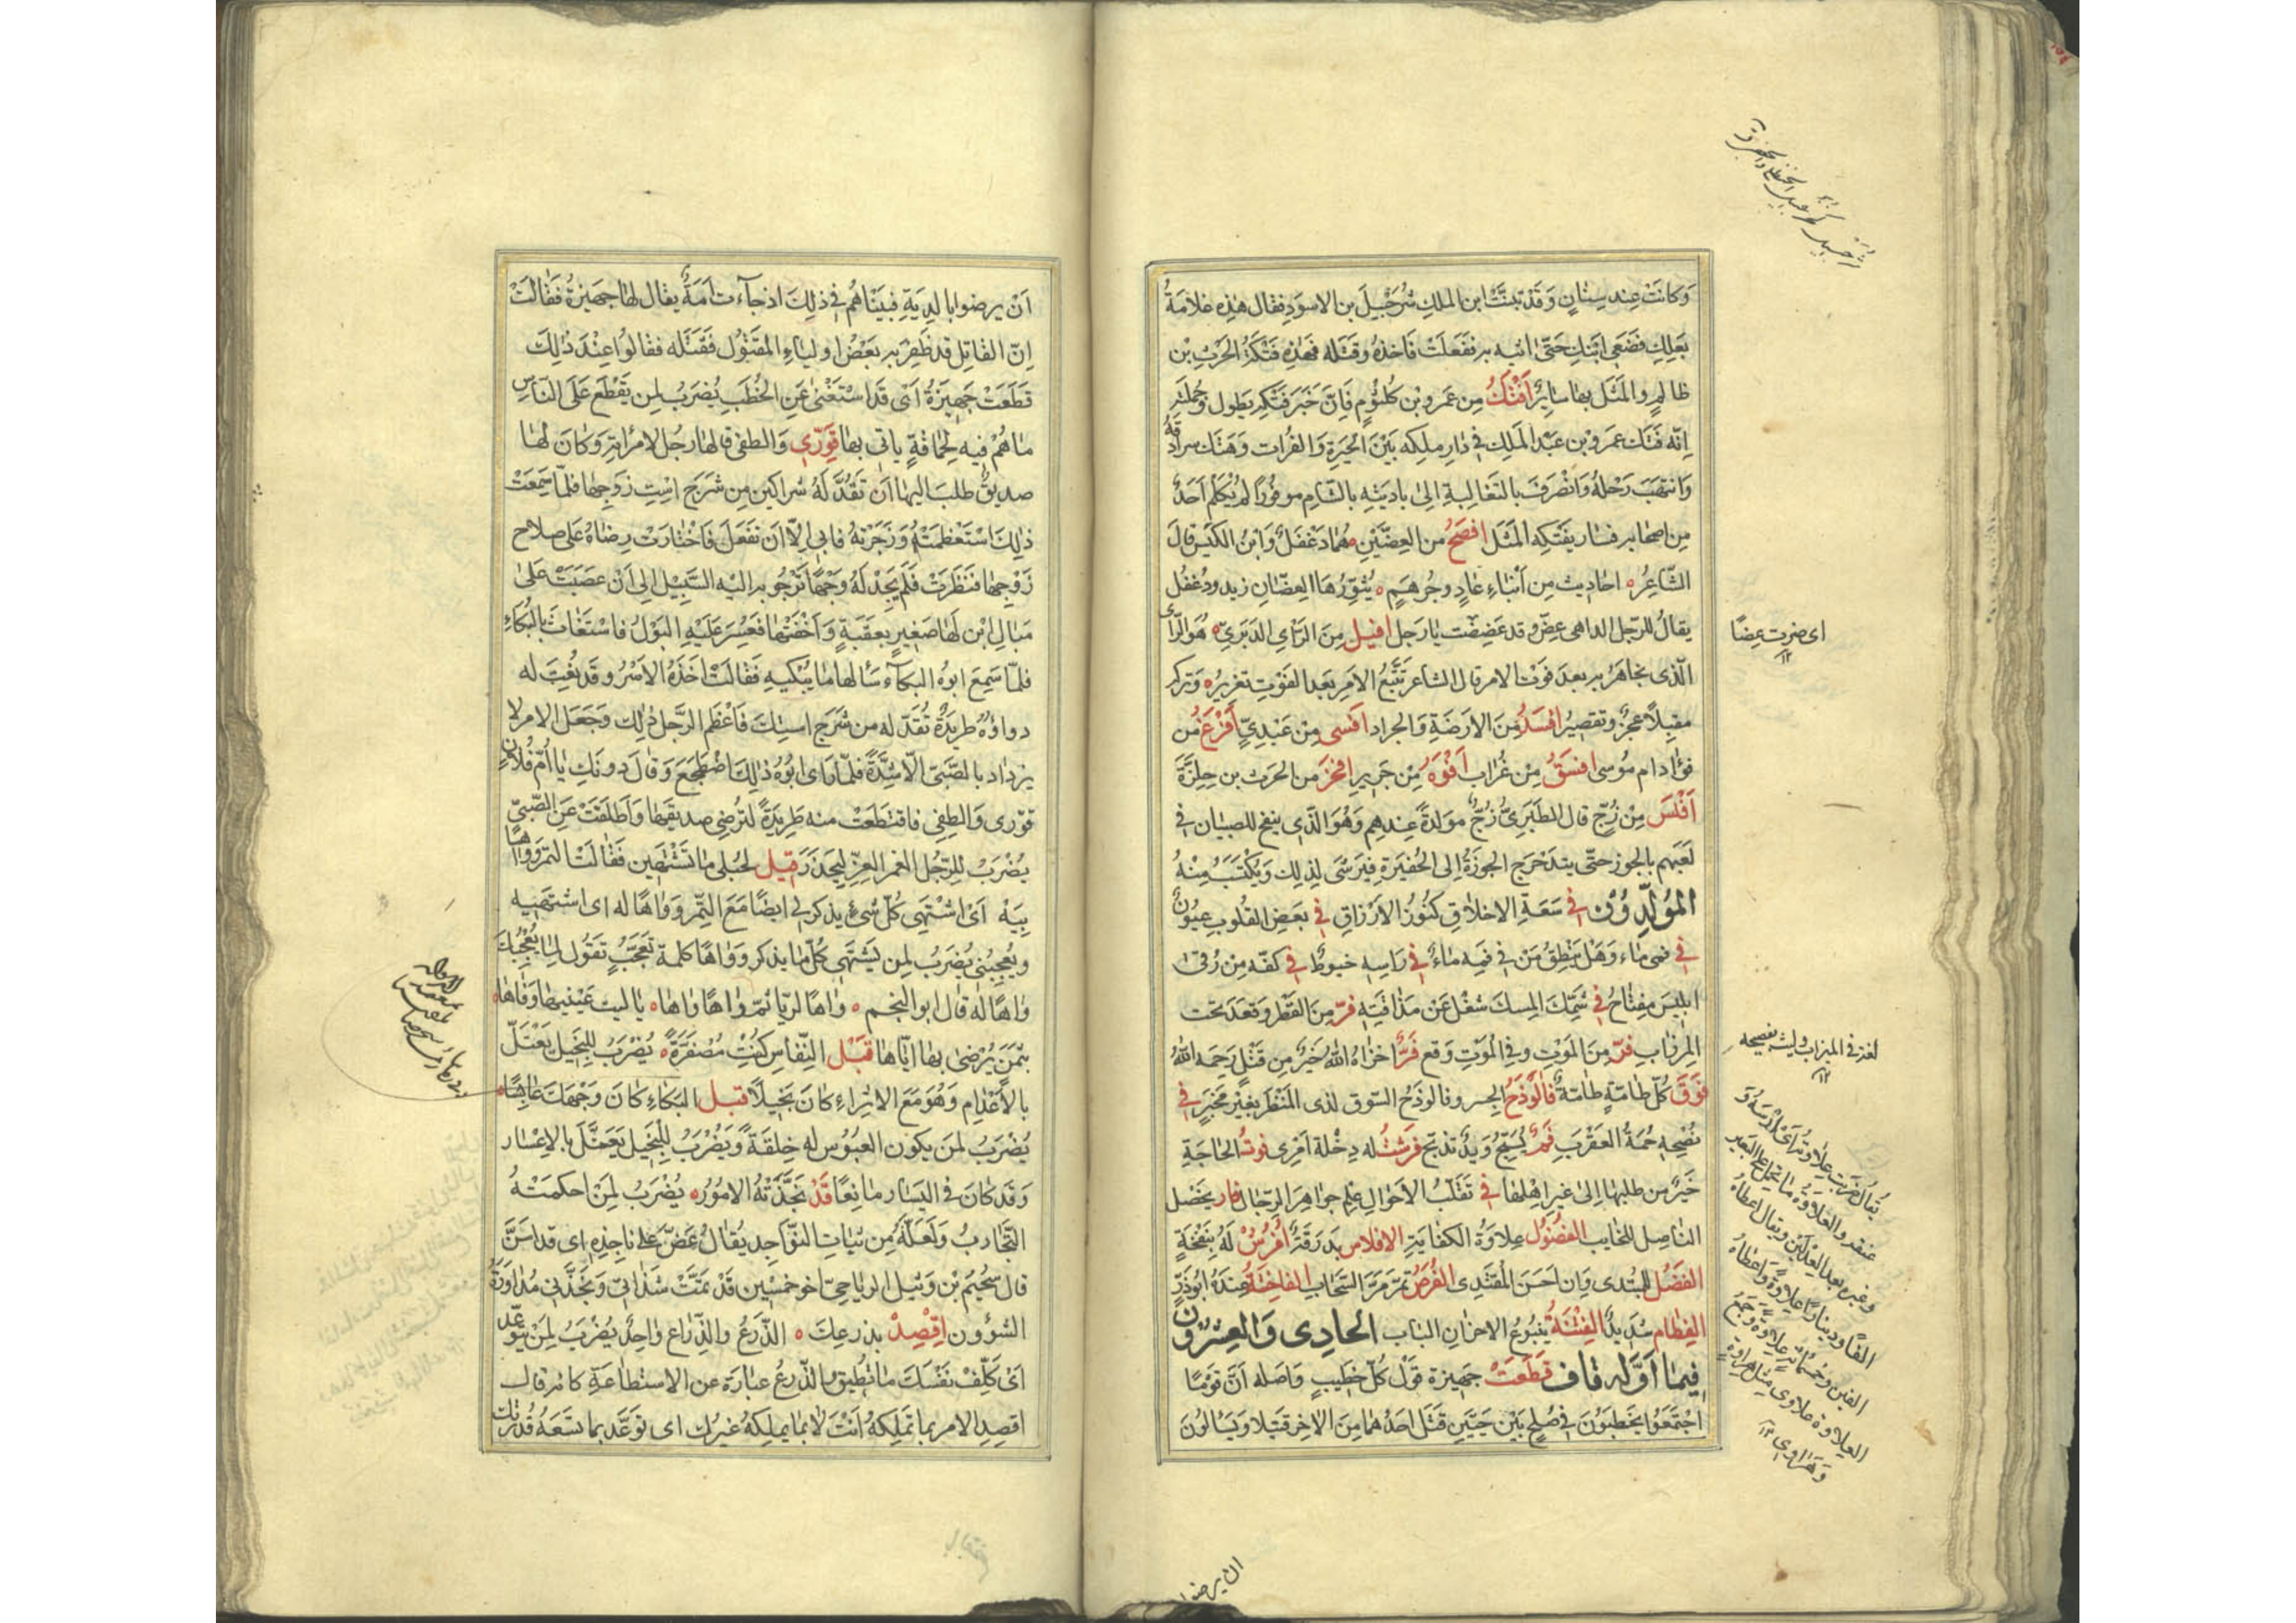 وَكانَتْ عِند سِنانٍ وَقَدْ تبنَّتْ ابن الملكِ شُرَحْبِيلَ بن الاسوَدِ فقال هٰذِه علامَةُ
بَعلِكِ فضَعِى ابنَكِ حَتّى اتيه به ففَعَلَتْ فاخذهُ وقتَله فهٰذِه فَتْكَةُ الحَرثِ بْن
ظالِمٍ والمَثَل بها سائِرٌ اَفْتَكُ مِن عَمرو بْن كُلثُومٍ فَاِنّ خَبَرَ فَتْكِه يَطول وجُملَته
اِنّه فَتَكَ عمَرو بْن عَبْد المَلِكِ فى دار ملِكه بَيْنَ الحِيرَةِ وَالفُرات وَهَتَك سرادقهُ
وَانتهَبَ رَحْلهُ وَانْصَرَفَ بالتَغالِبةِ اِلىٰ باديَتِه بالشّام موفُورًا لمْ يُكلَمْ اَحَدٌ
مِن اصحابِه فسٰار بفَتكِه المَثَل افصَحُ من العِضّيْنِ هُما دَغْفَلٌ وَابْنُ الكَيِّس قالَ
الشّاعِرُ احاديث مِن اَبْناءِ عادٍ وجُرهَمٍ يُثوِّرُهَا العِضّانِ زيد ودغفُل
يقالُ للرّجل الداهى عِضّ وقد عَضِضْت يا رَجل افيل مِنَ الرَّاى الدَبَرِىّ هُوَ الرّاى
الّذى يجاهَرُ به بعدَ فَوْت الامر قال الشاعر تَتَبُّعُ الامرِ بَعد الفَوْتِ تغريرٌ وَتركه
مقبِلًا عجزٌ وتقصِيرٌ افسَدُ مِنَ الارَضَةِ وَالجراد افسى مِنْ عَبْدِىٍّ اَفْرَغُ مِن
فؤاد ام مُوسى افسَقُ مِنْ غُرابٍ اَفْوَهُ مِنْ جَرِيرٍ افخرُ من الحَرث بن حِلِزَّةَ
اَفْلَسَ مِنْ زُجّ قال الطبَرِىُّ زُجٌّ مولدةٌ عِندهِم وَهُوَ الّذى ينفخ للصبيان فى
لَعبَهم بالجوز حتّى يتدَحْرَج الجوزَةُ اِلى الحُفيْرَةِ فيُرَشّى لذلِك وَيُكْتَسَبُ مِنْهُ
المُولّدون فى سَعَةِ الاخلاق كنُوزُ الاَرْزاقِ فى بعَضِ القُلوب عيُونٌ
فى فمى ماء وَهَلْ يَنْطِقُ مَنْ فى فيه ماءٌ فى رَاسِه خيوطٌ فى كفّه مِن رُقىٰ
ابليسَ مِفتاحٌ فى شَمِّكَ المِسكَ شغْل عَنْ مَذاقَتِه فرّ مِنَ القَطْر وَقعَدَ تحت
المِيزاب فرّ مِنَ المَوْتِ وفى الموتِ وَقع فَرَّ اخزاهُ اللهُ خَيْرٌ مِن قُتِلَ رَحِمَه اللهُ
فَوَقَ كُلّ طامّةٍ طامّةٌ فالُوذَجُ الجِسر وفالوذَجُ السّوق لذى المَنْظَر بغير مخبَرٍ فى
نُصْحِهِ حُمَةُ العَقْرَبِ فَمٌ يُسَبِّحُ وَيدٌ تذبَح فرَشتُ له دِخْلة اَمْرى فوتُ الحاجَةِ
خَيْرٌ من طلبها اِلىٰ غير اهْلِها فى تَقَلّبُ الاَحْوَالِ عِلم جوَاهِرَ الرِجال فاز بخَصْل
النّاصِل للخايب الفضُول عِلاوَةُ الكفايَةِ الافلاس بَدرقَةٌ اُفْرُشْ لَهُ بنَفْخَةٍ
الفضْل للمبُتدى وَاِن احَسَنَ المُقتَدى الفُرَصُ تمرّ مَرّ السّحَابِ الفاخِتَةُ عِندَهُ ابُوذَرٍّ
الفِطام شَدِيدٌ الفِتْنَةُ ينبُوعُ الاحزانِ البٰاب الحادِى وَالعِشرُون
فِيمَا اَوَّلهُ قاف قطَعَتْ جَهِيزة قَوْل كُلّ خَطِيبٍ وَاصَله اَنَّ قوَمًا
اجْتَمَعُوا يَخطبونَ فى صُلحٍ بَيْنَ حَيَّينِ قَتَل احَدُهُما مِنَ الاخِر قتيَلا ويَسْالُونَ
اى ضربت عِضًا ١٢
لغز فى الميزاب
يُقال ضرَبَت عِلاوَتهُ اَىْ رَاسَهُ وَ
عنقه والعِلاوَةُ ما يُحمل على البَعير
وغيره بعد العِدْلَيْن ويقال اعطاهُ
الفًا ودينارًا عِلاوَةً وَاعطاهُ
الفين وخمسمائة علاوَةً وَجَمْعُ
العِلاوَة علاوى مِثل هِراوَةٍ
وَهَراوى ١٢
ان يرضوا
اَنْ يرضوا بالدِيَةِ فبَيْناهُم فى ذٰلِكَ اذ جآءت اَمَةٌ يقال لها جهيزةُ فقالَتْ
اِنّ القاتِل قد ظَفِرَ به بعَضُ اوليآءِ المقتُولِ فَقَتَله فقالُوا عِنْدَ ذٰلِكَ
قطَعَتْ جَهِيزةُ اَىْ قد استَغْنىٰ عَنِ الخُطَبِ يُضرَبُ لِمن يَقطَع عَلَى النّاسِ
ما هُمْ فيه لِحَماقةٍ ياتى بها قوِّرى وَالطفى قالها رجُل لامرأتِه وَكانَ لها
صديقٌ طلب اليهٰا اَنْ تَقُدَّ لَهُ شراكين مِن شَرَج اسْتِ زوجِهٰا فلمّا سَمِعَتْ
ذٰلِكَ اسْتَعْظَمَتْهُ وَزَجَرَتهُ فابى اِلّا اَن تفعَلَ فَاخْتارَتْ رِضاهُ عَلى صلاح
زَوْجِها فنَظَرَتْ فَلَم تَجِدْ لَهُ وَجْهًا تَرْجُو به اليْه السَّبِيْل اِلى اَنْ عصَبَتْ عَلىٰ
مَبال ابْن لَها صَغِيرٍ بعقَبَةٍ وَاَخْفَتْها فعَسُرَ عَلَيْهِ البَوْلُ فاستَغاثَ بالبُكاءِ
فلمّا سَمِعَ ابوهُ البكآءَ سَألها ما يُبْكيهِ فَقالَتْ اخَذَهُ الاَسْرُ وقد نُعِتَ له
دواؤهُ طَرِيدَةٌ تُقَدّ له من شَرَج استِكَ فَاَعْظَم الرّجل ذٰلِك وَجَعَل الامر لا
يزداد بالصّبىّ الّا شِدَّةً فلمّا راى ابُوهُ ذٰلِكَ اضْطَجَعَ وَقال دونَكِ يا اُمّ فُلان
قوّرى وَالطِفى فاقتطَعَتْ منه طَرِيدَةً لتُرضى صديقَها وَاَطلَقَتْ عَنِ الصّبىّ
يُضْرَبُ للِرّجُل الغمر الغِرّ لِيَحذَرَ قيل لحُبلى ما تَشْتَهين فَقالَتْ التمر ووَاهًا
بِيَهْ اَىْ اشْتهَى كُلّ شىءٍ يذكر لى ايضًا مَعَ التّمر وَوَاهًا له اى اشتهيه
ويُعجِبنى يُضرَبُ لِمن يَشتَهى كُلّ ما يذكر وَوَاهًا كلمة تَعَجُّبٍ تقولُ لِما يُعْجِبُكَ
وٰاهًا لهُ قال ابو النجم واهًا لريّا ثمّ واهًا واها يا ليت عَيْنيها وَفاها
بثَمَنٍ نُرْضىٰ بها اَبٰاها قَبْل النِّفاسِ كنْتِ مُصْفَرّةً يُضْرَبُ لِلبَخِيل يَعْتَلّ
بالاعْدَامِ وَهُوَ مَعَ الاثراءِ كان بَخيلًا قبل البُكاءِ كانَ وَجْهُكَ عابِسًا
يُضْرَبُ لمن يكون العبُوسُ له خِلقَةً ويُضْرَبُ لِلبَخيل يَعتَلّ بالاِعْسار
وَقد كانَ فى اليَسار مانِعًا قَدْ نجَّذَتْهُ الامُورُ يُضْرَبُ لِمَنْ احكمَتْهُ
التَّجاربُ وَلَعَلّهُ مِن نَبات النّوَاجِد يُقالُ عَضّ عَلىٰ ناجِذِه اى قد اسَنَّ
قال سُحَيْم بْن وَثيل الرياحىّ اخو خمْسين قد تمَتّْ شَذاتى وَنجَّذنى مُداوَرَةُ
الشؤون اِقْصِدْ بذرعِكَ الذّرَعُ والذِّراعُ واحِدٌ يُضرَبُ لِمَنْ يتوعّد
اَىْ كَلّفْ نفسَكَ ما تُطيق وَالذّرعُ عبارَة عن الاستطاعَةِ كانه قال
اقصِدِ الامر بما تملِكهُ اَنْتَ لا بما يملِكهُ غيرُك اى توعَّد بما تَسَعَهُ قُدْرتك